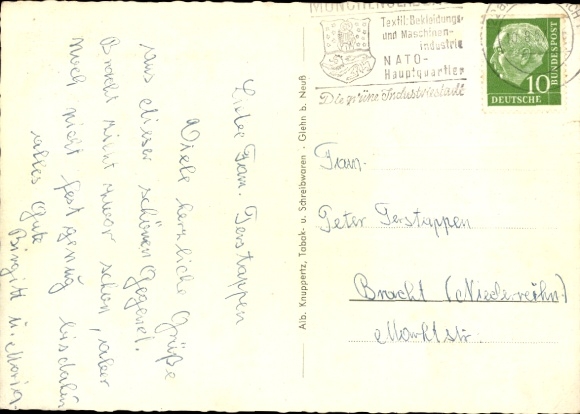 Liebe Fam. Terstappen
Viele herzliche Grüße
aus dieser schönen Gegend.
Bracht ist zwar schön, aber
noch nicht fertig genug bis dahin
alles Gute
Birgitt u. Maria
Alb. Knuppertz, Tabak- u. Schreibwaren - Glehn b. Neuß
MÜNCHENGLADBACH
Textil-Bekleidungs-
und Maschinen-
industrie
NATO-
Hauptquartier
Die grüne Industriestadt
10
DEUTSCHE BUNDESPOST
Fam.
Peter Terstappen
Bracht (Niederrhein)
Marktstr.